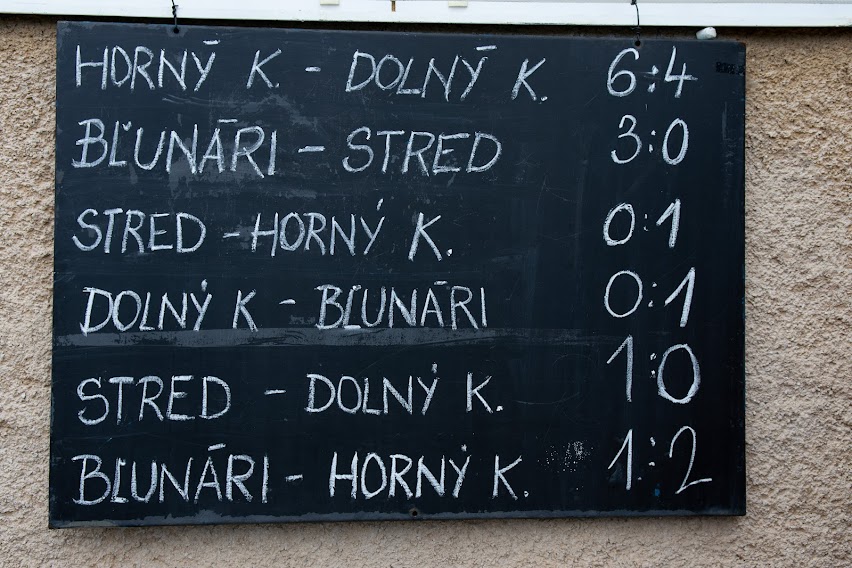 HORNÝ K. - DOLNÝ K. 6:4
BĽUNÁRI - STRED 3:0
STRED - HORNÝ K. 0:1
DOLNÝ K - BĽUNÁRI 0:1
STRED - DOLNÝ K. 1:0
BĽUNÁRI - HORNÝ K. 1:2